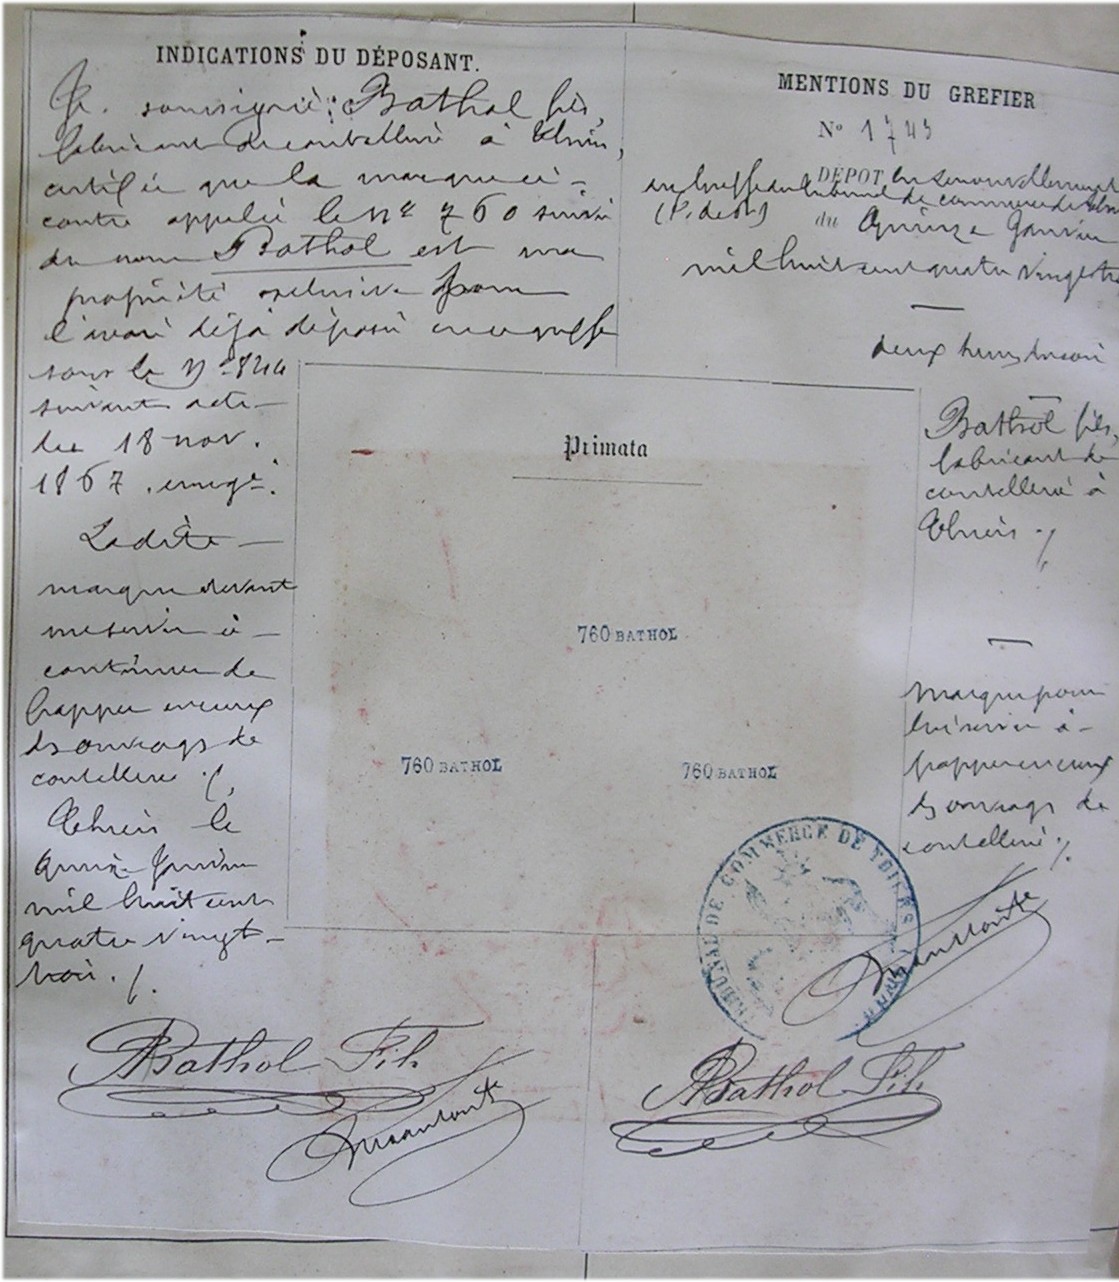 INDICATIONS DU DÉPOSANT.
Je soussigné: Bathol fils,
fabricant de coutellerie à Thiers,
certifie que la marque ci-
contre appelée le nº 760 suivi
du nom Bathol est ma
propriété exclusive pour
l'avoir déjà déposé en ce greffe
sous le nº 844
suivant acte
du 18 nov.
1867, enregé.
Ladite
marque devant
me servir à
continuer de
frapper en creux
ds ouvrags de
coutellerie ./.
Thiers le
quinze janvier
mil huit cent
quatre vingt-
trois ./.
Bathol Fils
MENTIONS DU GREFIER
Nº 1743
DÉPOT en renouvellement
au greffe du tribunal de commerce de Thiers
(P. de D.) du Quinze Janvier
mil huit cent quatre vingt tr
deux heures du soir
Bathol fils,
fabricant de
coutellerie à
Thiers ./.
Marque pour
lui servir à
frapper en creux
ds ouvrags de
coutellerie ./.
Primata
760 BATHOL
760 BATHOL
760 BATHOL
TRIBUNAL DE COMMERCE DE THIERS
Bathol Fils